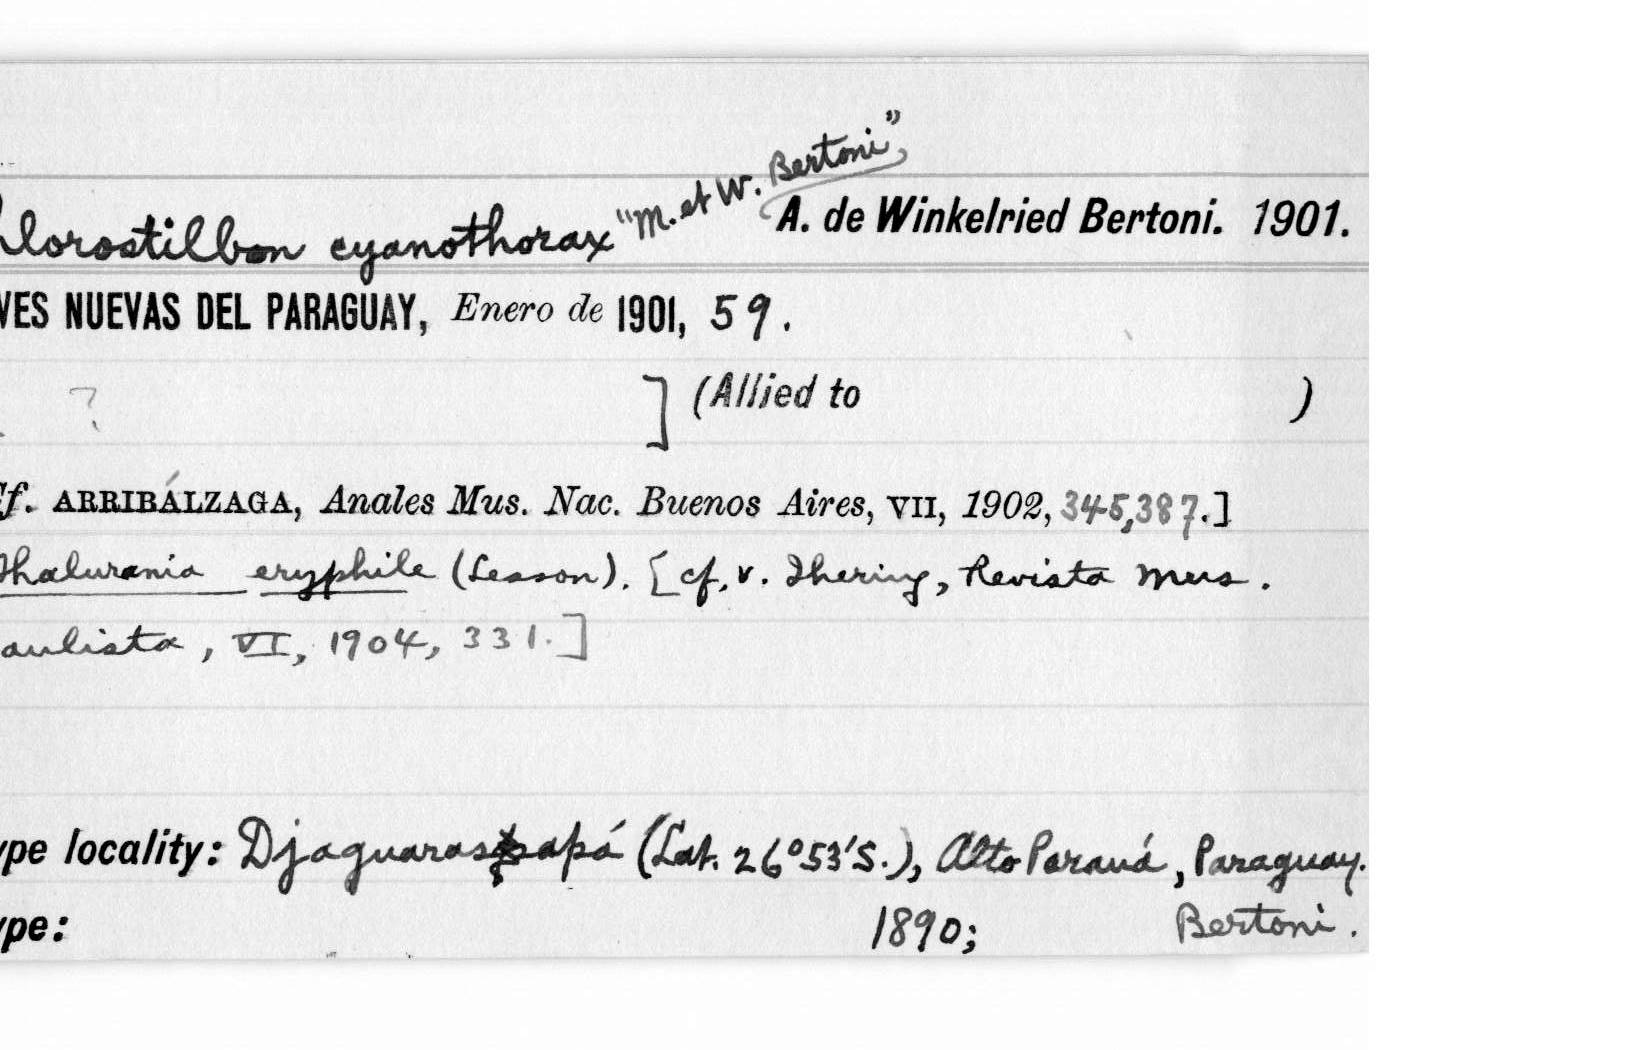 hlorostilbon cyanothorax "M. et W. Bertoni", A. de Winkelried Bertoni. 1901.
VES NUEVAS DEL PARAGUAY, Enero de 1901, 59.
? ] (Allied to )
f. ARRIBÁLZAGA, Anales Mus. Nac. Buenos Aires, VII, 1902, 345,387.]
Thalurania eryphile (Lesson). [cf. v. Ihering, Revista Mus.
aulista, VI, 1904, 331.]
ype locality: Djaguarasapá (Lat. 26°53'S.), Alto Paraná, Paraguay.
ype: 1890; Bertoni.